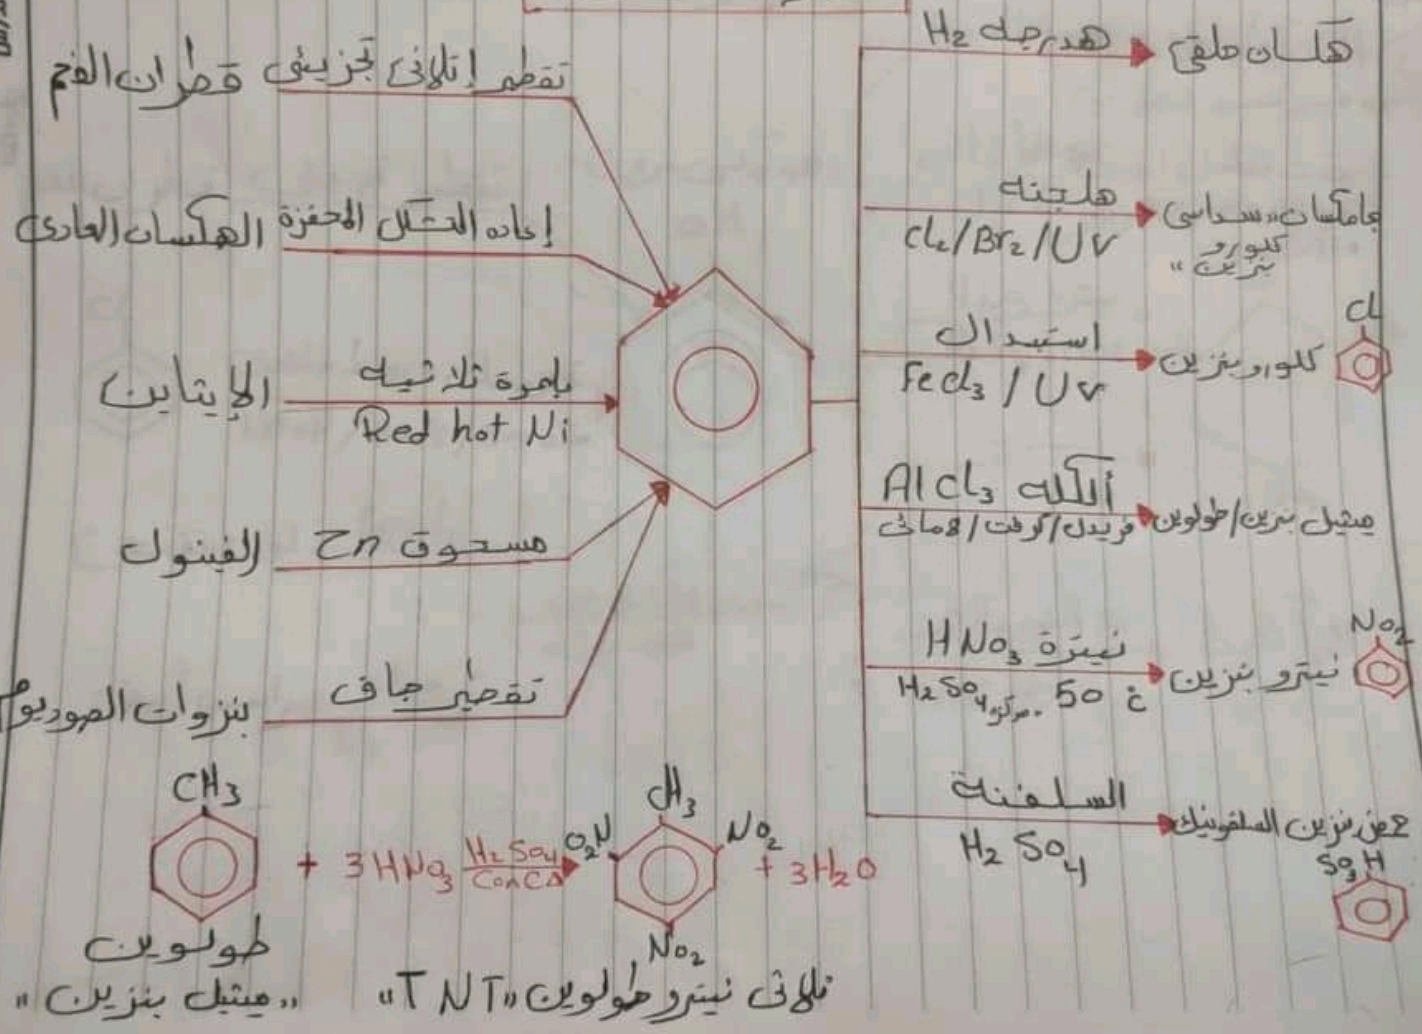 قطران الفحم
تقطير إتلافى تجزيئى
الهكسان العادى
إعاده التشكل المحفزة
الإيثاين
بلمرة ثلاثيه
Red hot Ni
الفينول
مسحوق Zn
بنزوات الصوديوم
تقطير جاف
هدرجه H2
هكسان حلقى
هلجنه
Cl2/Br2/UV
جامكسان "سداسى
كلورو
بنزين"
استبدال
FeCl3 / UV
كلورو بنزين
Cl
ألكله AlCl3
فريدل/كرفت/
ميثيل بنزين/طولوين
نيترة HNO3
H2SO4 مركز. 50 خ
نيترو بنزين
NO2
السلفنة
H2SO4
حمض بنزين السلفونيك
SO3H
CH3
+ 3HNO3
H2SO4
ConC Δ
CH3
O2N
NO2
NO2
+ 3H2O
طولوين
"ميثيل بنزين"
ثلاثى نيترو طولوين "TNT"